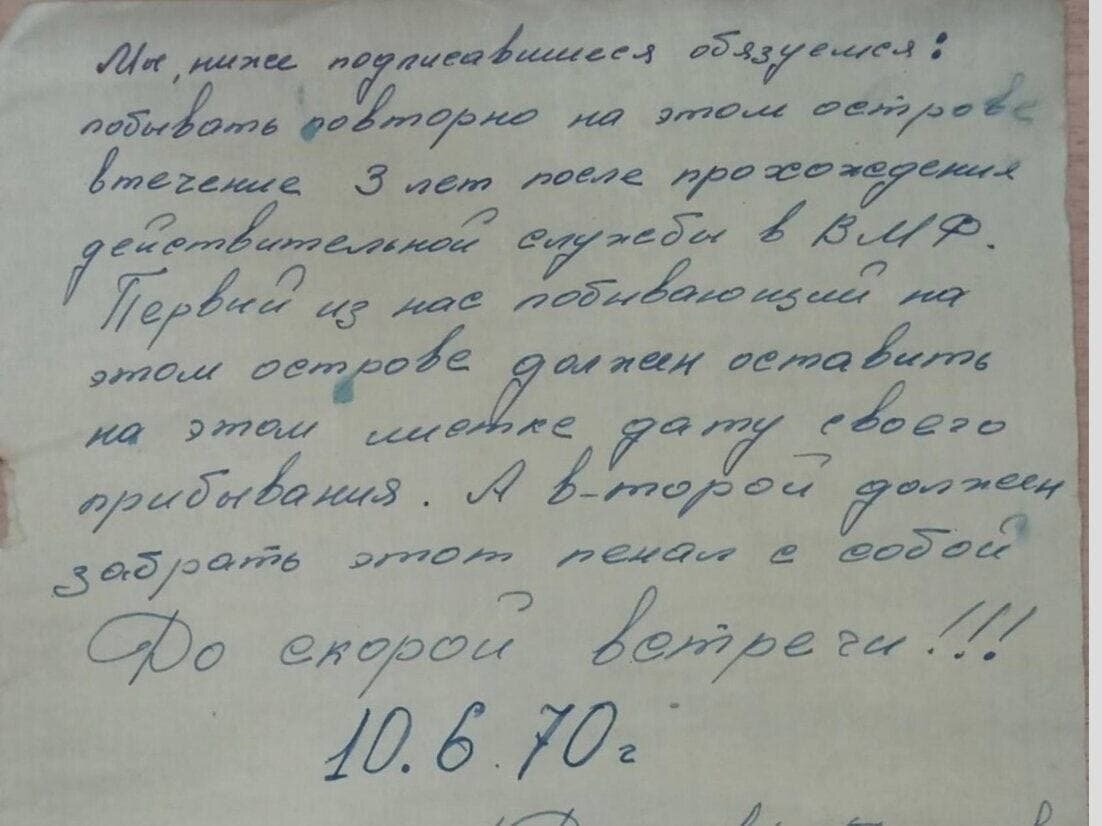 Мы, ниже подписавшиеся обязуемся:
побывать повторно на этом острове
втечение 3 лет после прохождения
действительной службы в ВМФ.
Первый из нас побывающий на
этом острове должен оставить
на этом листке дату своего
прибывания. А в-торой должен
забрать этот пенал с собой
До скорой встречи!!!
10.6.70г